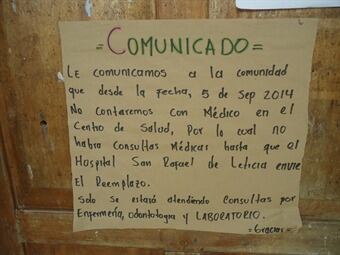 = COMUNICADO =
LE COMUNICAMOS a la comunidad
que desde la fecha, 5 de Sep 2014
No Contaremos con Médico en el
Centro de Salud, Por lo cual no
habra Consultas Médicas hasta que el
Hospital San Rafael de Leticia envie
El Reemplazo.
Solo se estará atendiendo Consultas por
Enfermería, odontologia y LABORATORIO.
=Gracias=